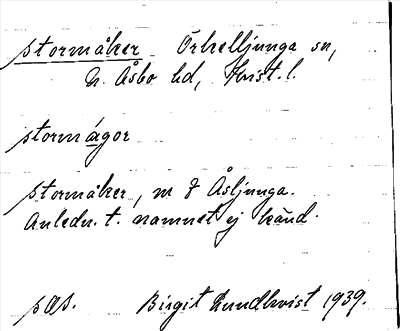 stormåker Örkelljunga sn,
N. Åsbo hd, Krist. l.
stormågor
stormåker, m & Åsljunga.
Anledn. t. namnet ej känd.
pAs. Birgit Lundkvist 1939.